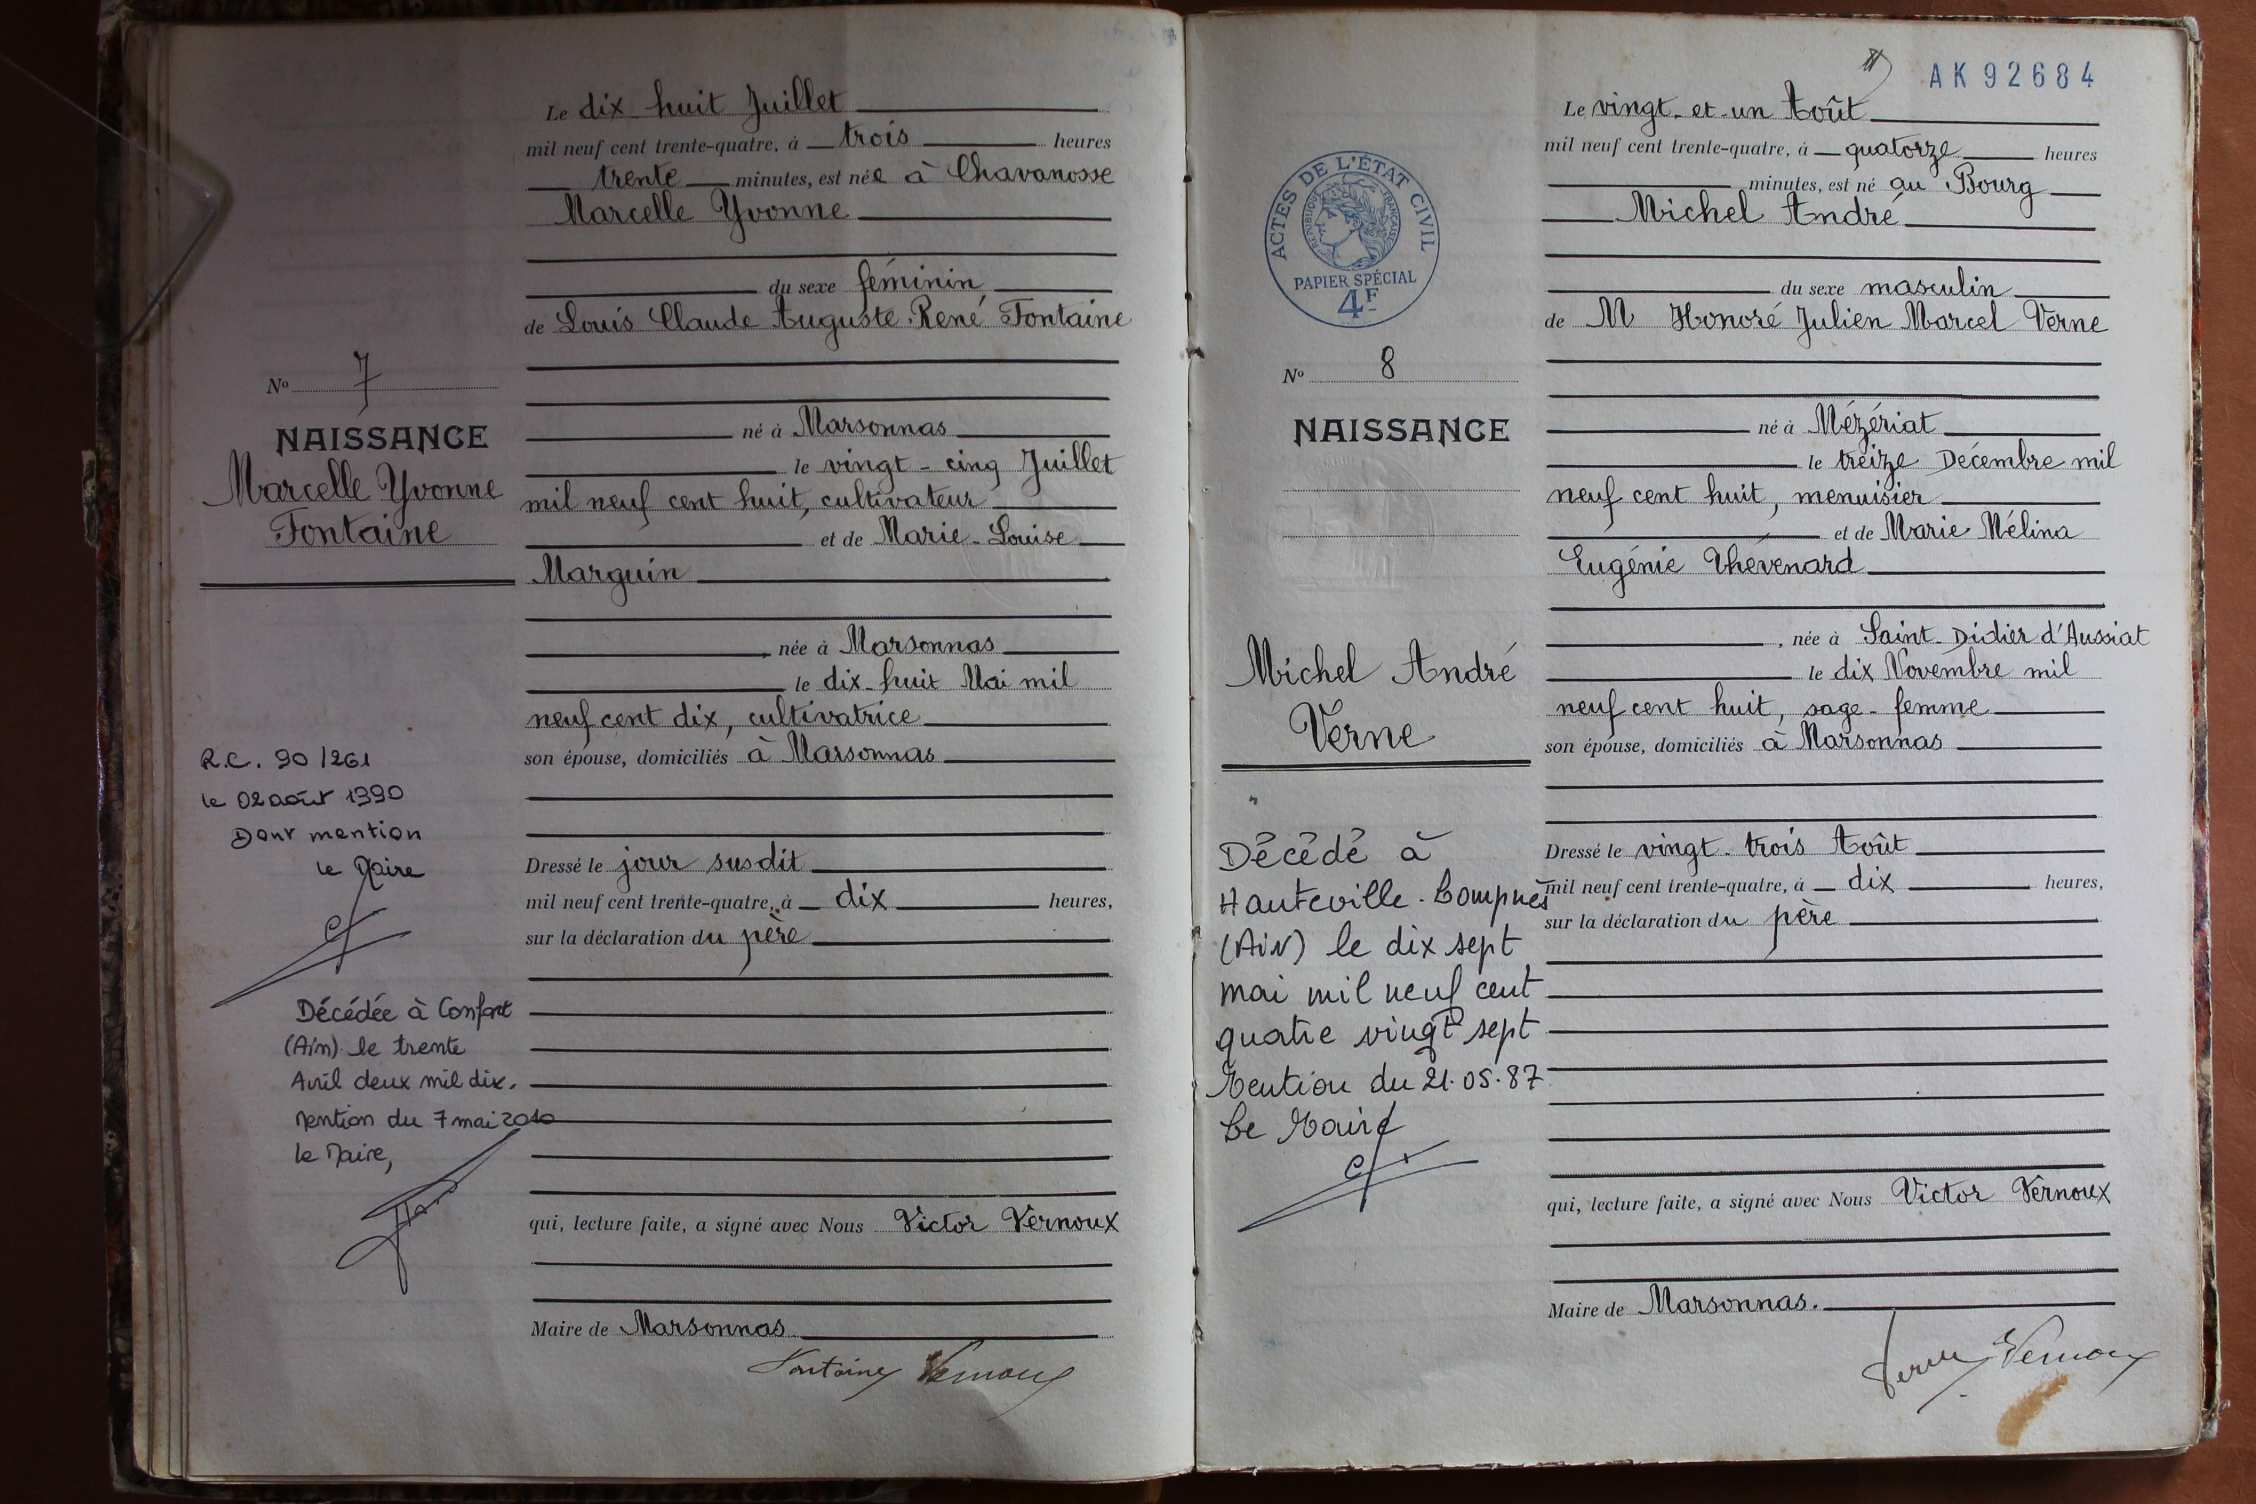 Le dix-huit Juillet
mil neuf cent trente-quatre, à trois heures
trente minutes, est née à Chavanosse
Marcelle Yvonne
du sexe féminin
de Louis Claude Auguste René Fontaine
né à Marsonnas
le vingt-cinq Juillet
mil neuf cent huit, cultivateur
et de Marie-Louise
Marguin
née à Marsonnas
le dix-huit Mai mil
neuf cent dix, cultivatrice
son épouse, domiciliés à Marsonnas
Dressé le jour susdit
mil neuf cent trente-quatre, à dix heures,
sur la déclaration du père
qui, lecture faite, a signé avec Nous Victor Vernoux
Maire de Marsonnas
Fontaine Vernoux
No 7
NAISSANCE
Marcelle Yvonne
Fontaine
R.C. 90/261
le 02 août 1990
Dont mention
le Maire
Décédée à Confort
(Ain) le trente
Avril deux mil dix.
Mention du 7 mai 2010
le Maire,
AK92684
ACTES DE L'ÉTAT CIVIL
RÉPUBLIQUE FRANÇAISE
PAPIER SPÉCIAL
4F
No 8
NAISSANCE
Michel André
Verne
Décédé à
Hauteville-Lompnes
(Ain) le dix sept
mai mil neuf cent
quatre vingt sept
Mention du 21.05.87
Le Maire
Le vingt-et-un Août
mil neuf cent trente-quatre, à quatorze heures
minutes, est né au Bourg
Michel André
du sexe masculin
de M Honoré Julien Marcel Verne
né à Mézériat
le treize Décembre mil
neuf cent huit, menuisier
et de Marie Mélina
Eugénie Thévenard
, née à Saint-Didier d'Aussiat
le dix Novembre mil
neuf cent huit, sage-femme
son épouse, domiciliés à Marsonnas
Dressé le vingt-trois Août
mil neuf cent trente-quatre, à dix heures,
sur la déclaration du père
qui, lecture faite, a signé avec Nous Victor Vernoux
Maire de Marsonnas.
Verne Vernoux